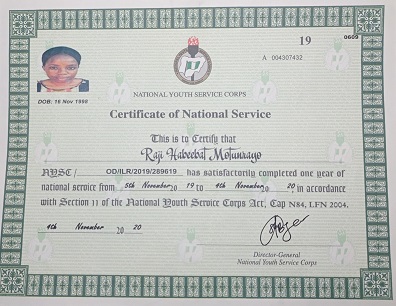 19
0609
A 004307432
NATIONAL YOUTH SERVICE CORPS
DOB: 16 Nov 1998
Certificate of National Service
This is to Certify that
Raji Habeebat Motunrayo
NYSC/ OD/ILR/2019/289619 has satisfactorily completed one year of
national service from 5th November 20 19 to 4th November 20 20, in accordance
with Section 11 of the National Youth Service Corps Act, Cap N84, LFN 2004.
4th November 20 20
Director-General
National Youth Service Corps